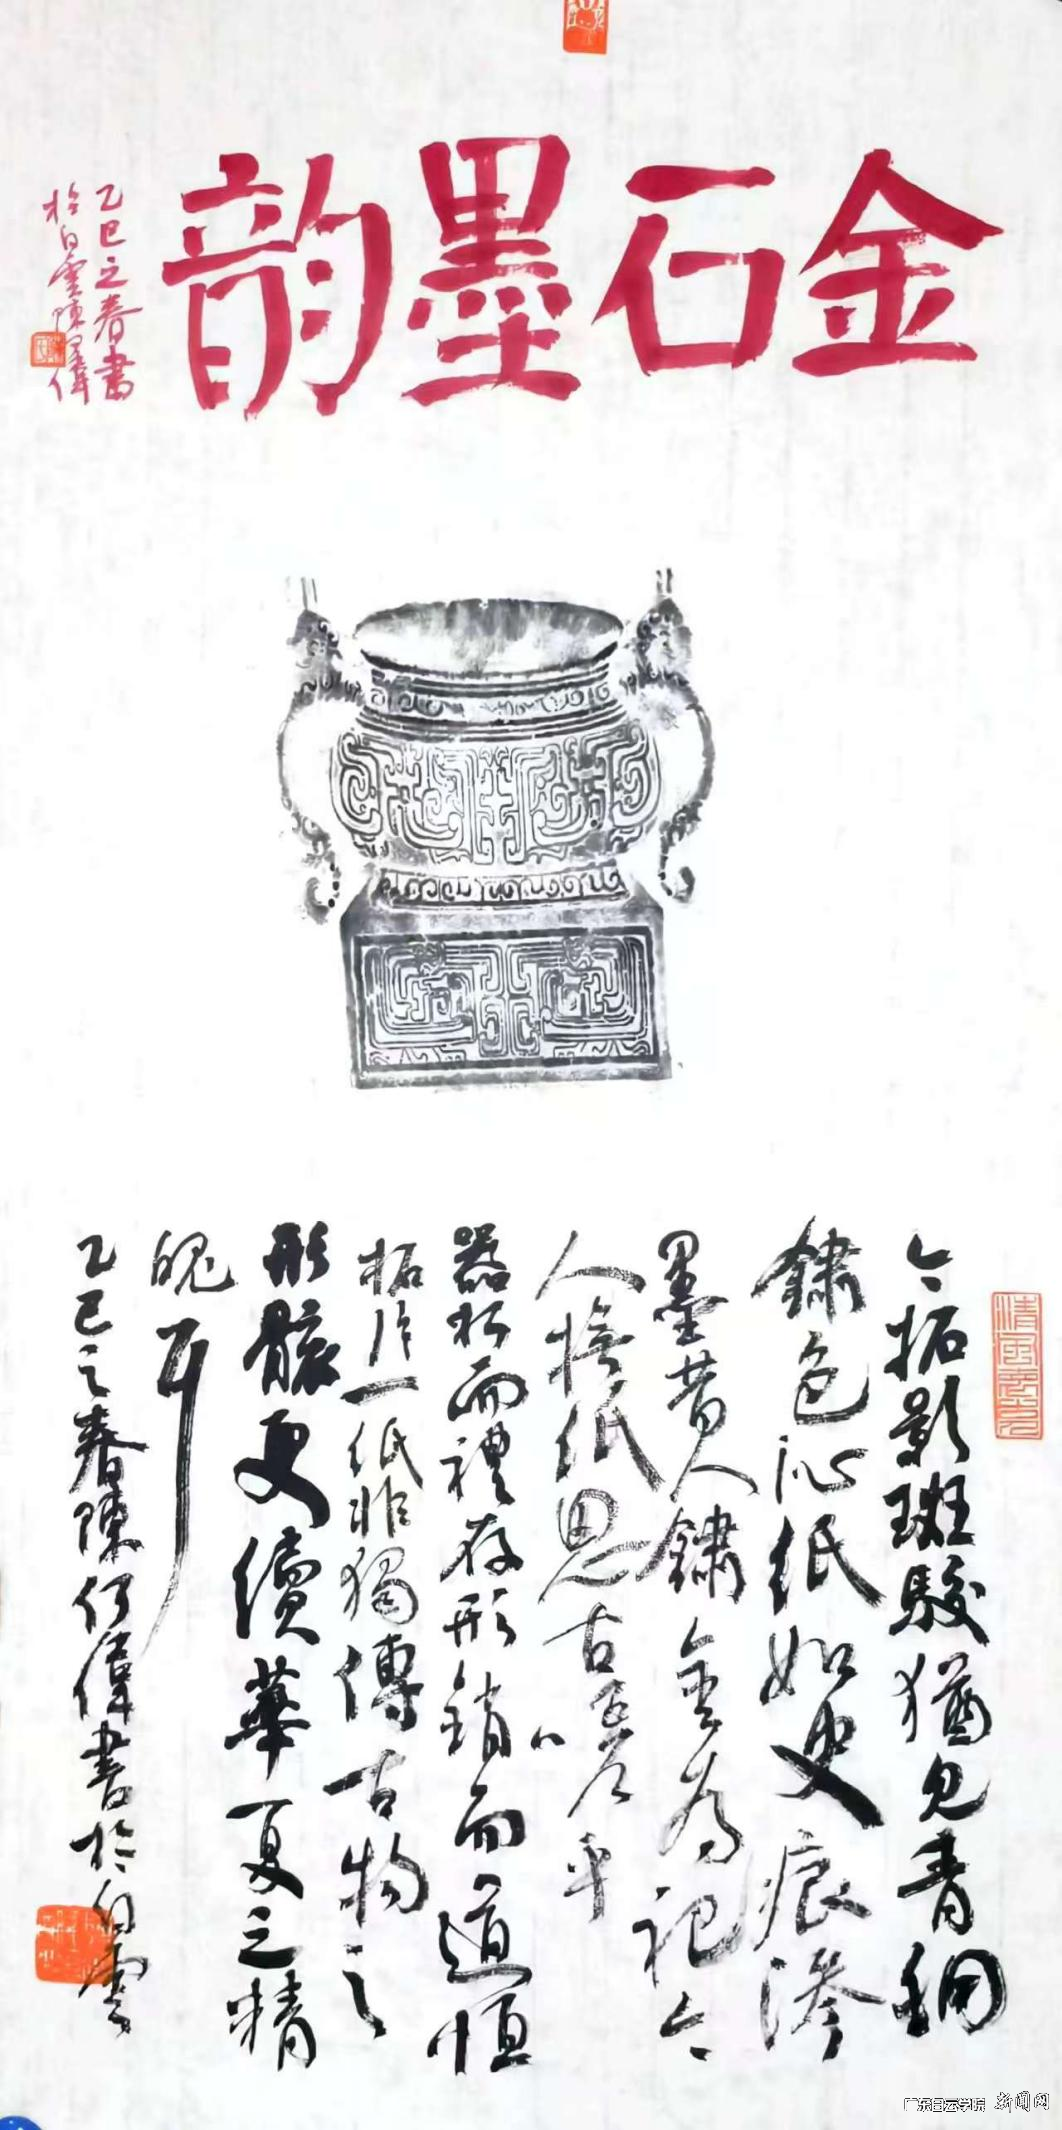 金石墨韵
乙巳之春書
於白雲陳何偉
今拓影斑駮猶見青銅
鏽色沁紙如史痕滲
墨昔人鏽金為記今
人紙思古嗟乎
器朽而禮存形銷而道恒
拓片一紙非獨傳古物之
形骸更續華夏之精
魄耳
乙巳之春陳何偉書於白雲
广东白云学院 新闻网